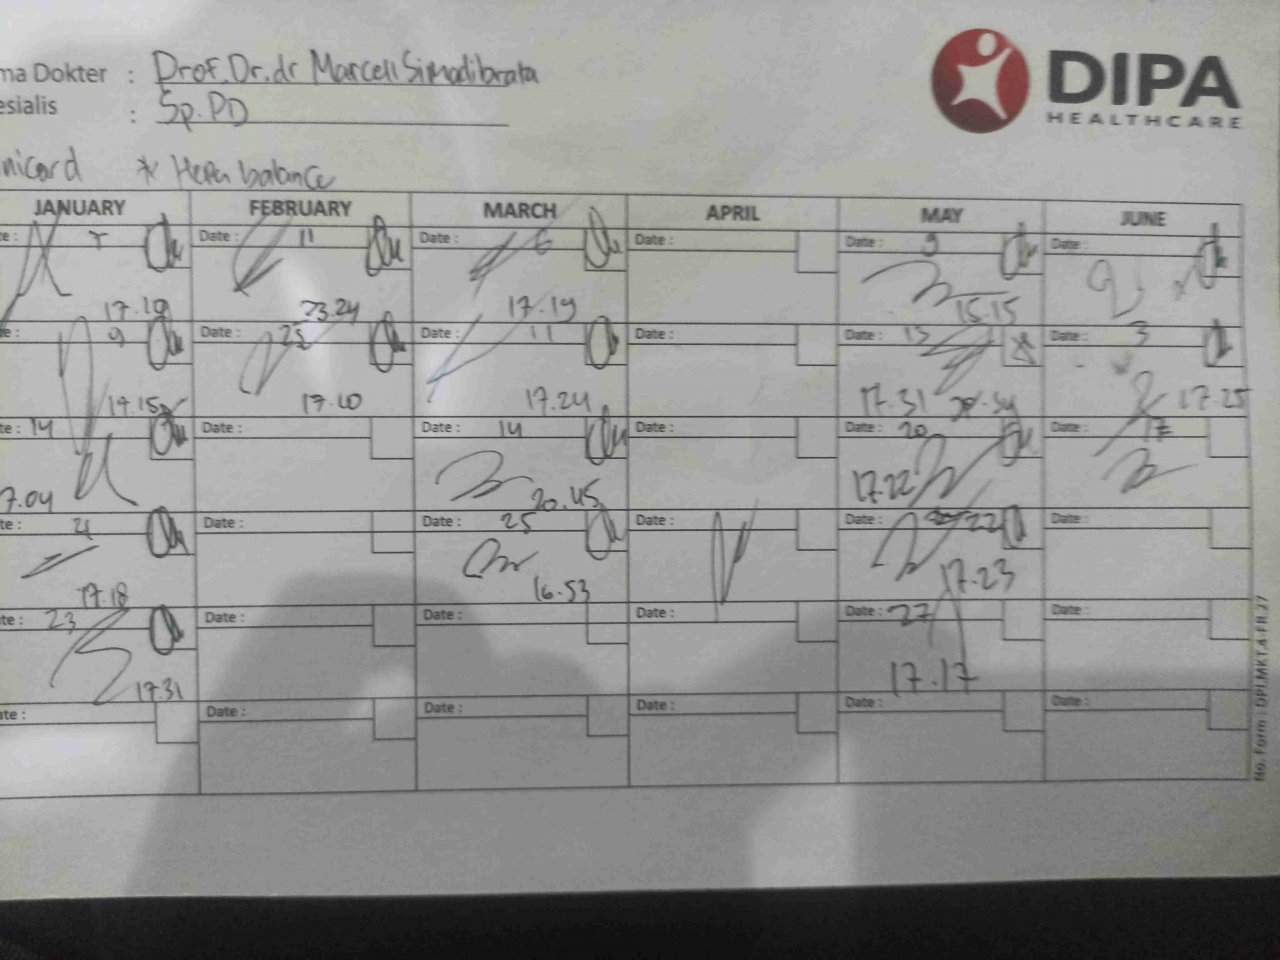 ma Dokter : Prof. Dr. dr Marcell Simadibrata
esialis : Sp. PD
DIPA
HEALTHCARE
nicard * Hepa balance
JANUARY FEBRUARY MARCH APRIL MAY JUNE
te : Date : 11 Date : 6 Date : Date : 9 Date :
17.19 23.24 17.19 15.15
te : 9 Date : 25 Date : 11 Date : Date : 15 Date : 3
17.10 17.24 17.31 17.25
te : 14 Date : Date : 14 Date : Date : 20 Date : 17
7.04 20.45 17.22
te : Date : Date : 25 Date : Date : 22 Date :
17.18 16.53 17.23
te : 23 Date : Date : Date : Date : 27 Date :
17.31 17.17
te : Date : Date : Date : Date : Date :
No. Form : DPI.MKT.4-FR.27